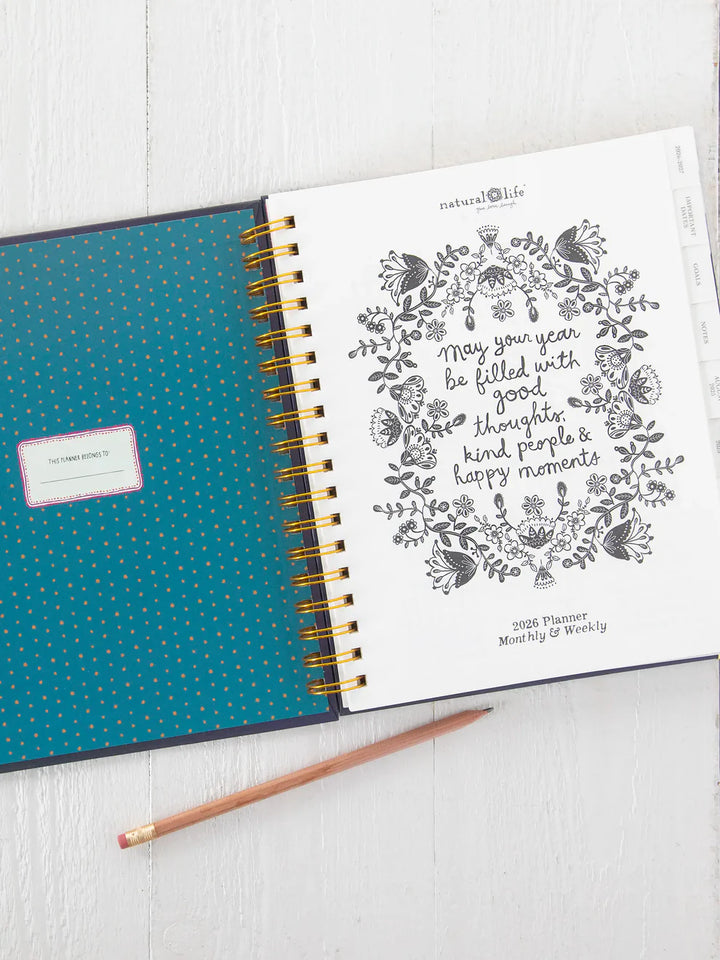 THIS PLANNER BELONGS TO:
natural life
May your year
be filled with
good
thoughts,
kind people &
happy moments
2026 Planner
Monthly & Weekly
2026-2027
IMPORTANT
DATES
GOALS
NOTES
2025